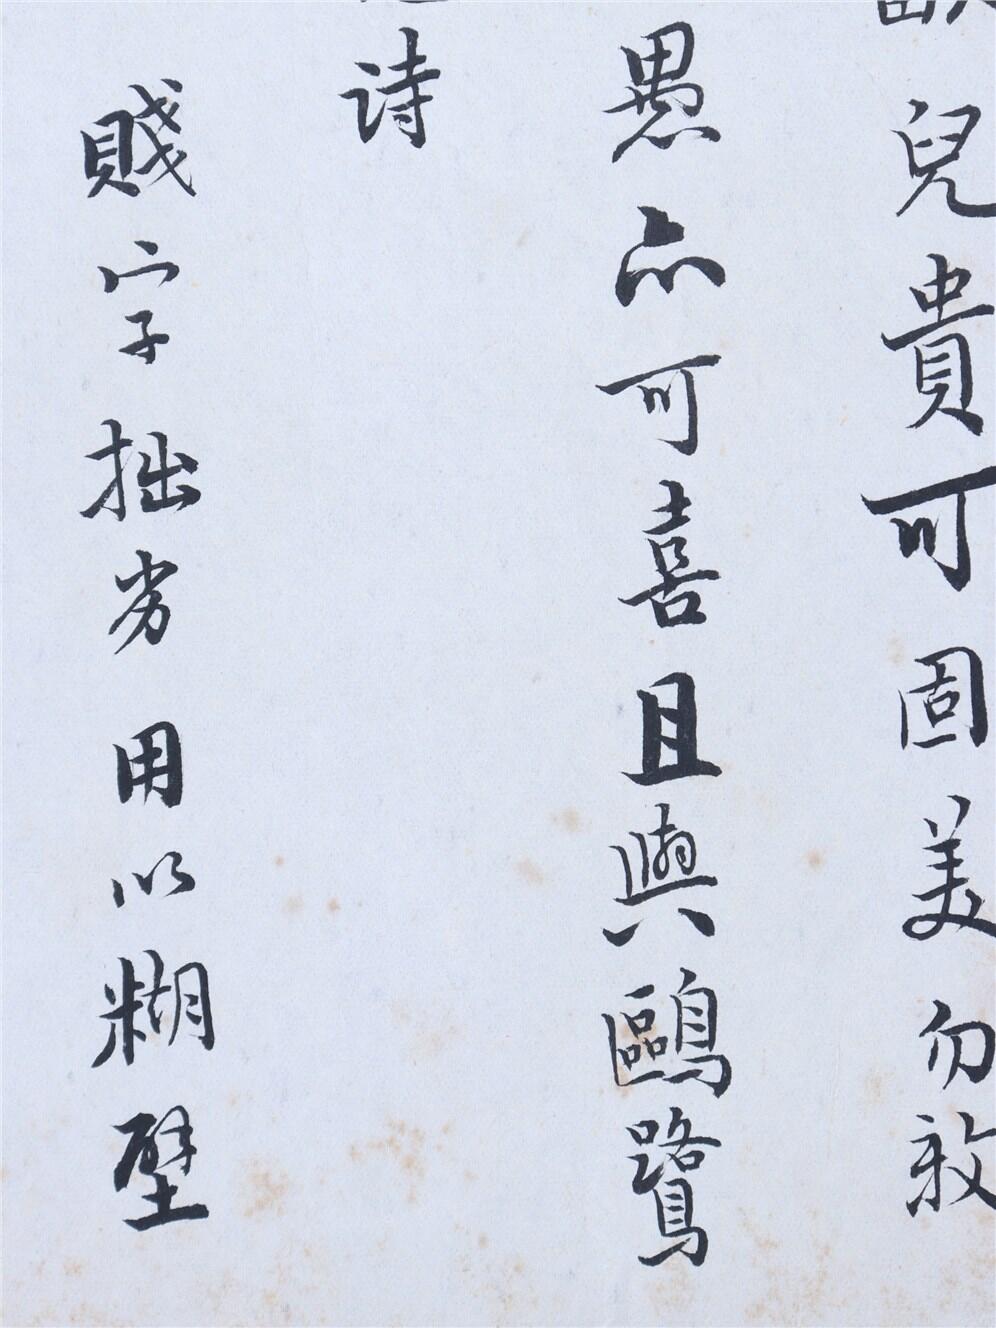 兒貴可固美勿
愚亦可喜且與鷗鷺
詩
賤字拙劣用以糊壁